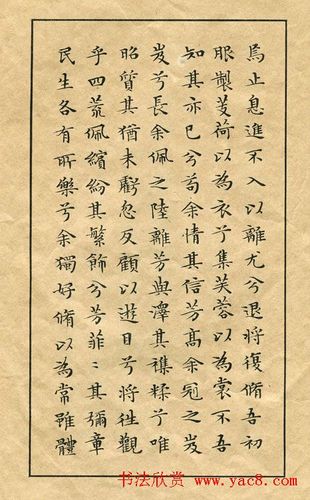 焉止息進不入以離尤兮退將復脩吾初
服製芰荷以為衣兮集芙蓉以為裳不吾
知其亦已兮苟余情其信芳高余冠之岌
岌兮長余佩之陸離芳與澤其雜糅兮唯
昭質其猶未虧忽反顧以遊目兮將往觀
乎四荒佩繽紛其繁飾兮芳菲〻其彌章
民生各有所樂兮余獨好脩以為常雖體
书法欣赏
www.yac8.com